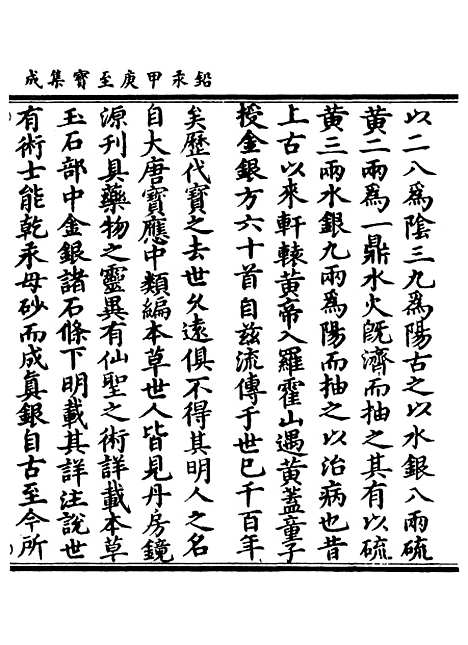 鉛汞甲庚至寶集成
以二八爲陰三九爲陽古之以水銀八兩硫
黃二兩爲一鼎水火旣濟而抽之其有以硫
黃三兩水銀九兩爲陽而抽之以治病也昔
上古以來軒轅黃帝入羅霍山遇黃蓋童子
授金銀方六十首自茲流傳于世已千百年
矣歷代寶之去世久遠俱不得其明人之名
自大唐寶應中類編本草世人皆見丹房鏡
源刋具藥物之靈異有仙聖之術詳載本草
玉石部中金銀諸石條下明載其詳注說世
有術士能乾汞母砂而成眞銀自古至今所